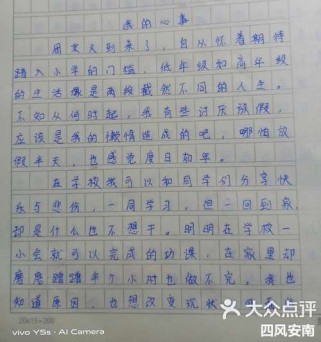 我的心事
周末又到来了，自从怀着期待
踏入小学的门槛，低年级和高年级
的生活像是两段截然不同的人生。
不知从何时起，我有些讨厌放假，
应该是我的懒惰造成的吧，哪怕放
假半天，也感觉度日如年。
在学校我可以和同学们分享快
乐与悲伤，一同学习，但一回到家，
却是什么也不想干。明明在学校一
小会就可以完成的功课，在家里却
磨磨蹭蹭半个小时也做不完。我也
知道原因，也想改变现状
20×15=300
vivo Y5s · AI Camera
大众点评
四风安南